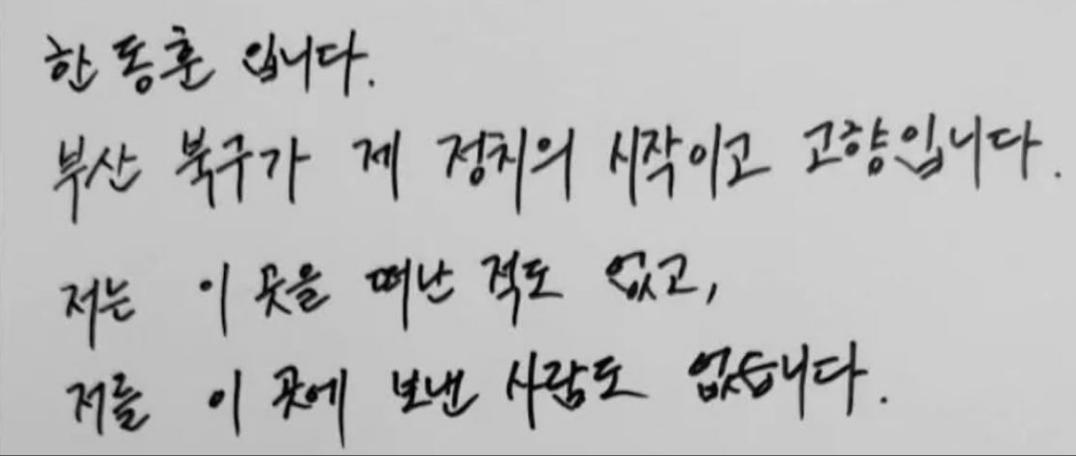 한동훈 입니다.
부산 북구가 제 정치의 시작이고 고향입니다.
저는 이 곳을 떠난 적도 없고,
저를 이 곳에 보낸 사람도 없습니다.